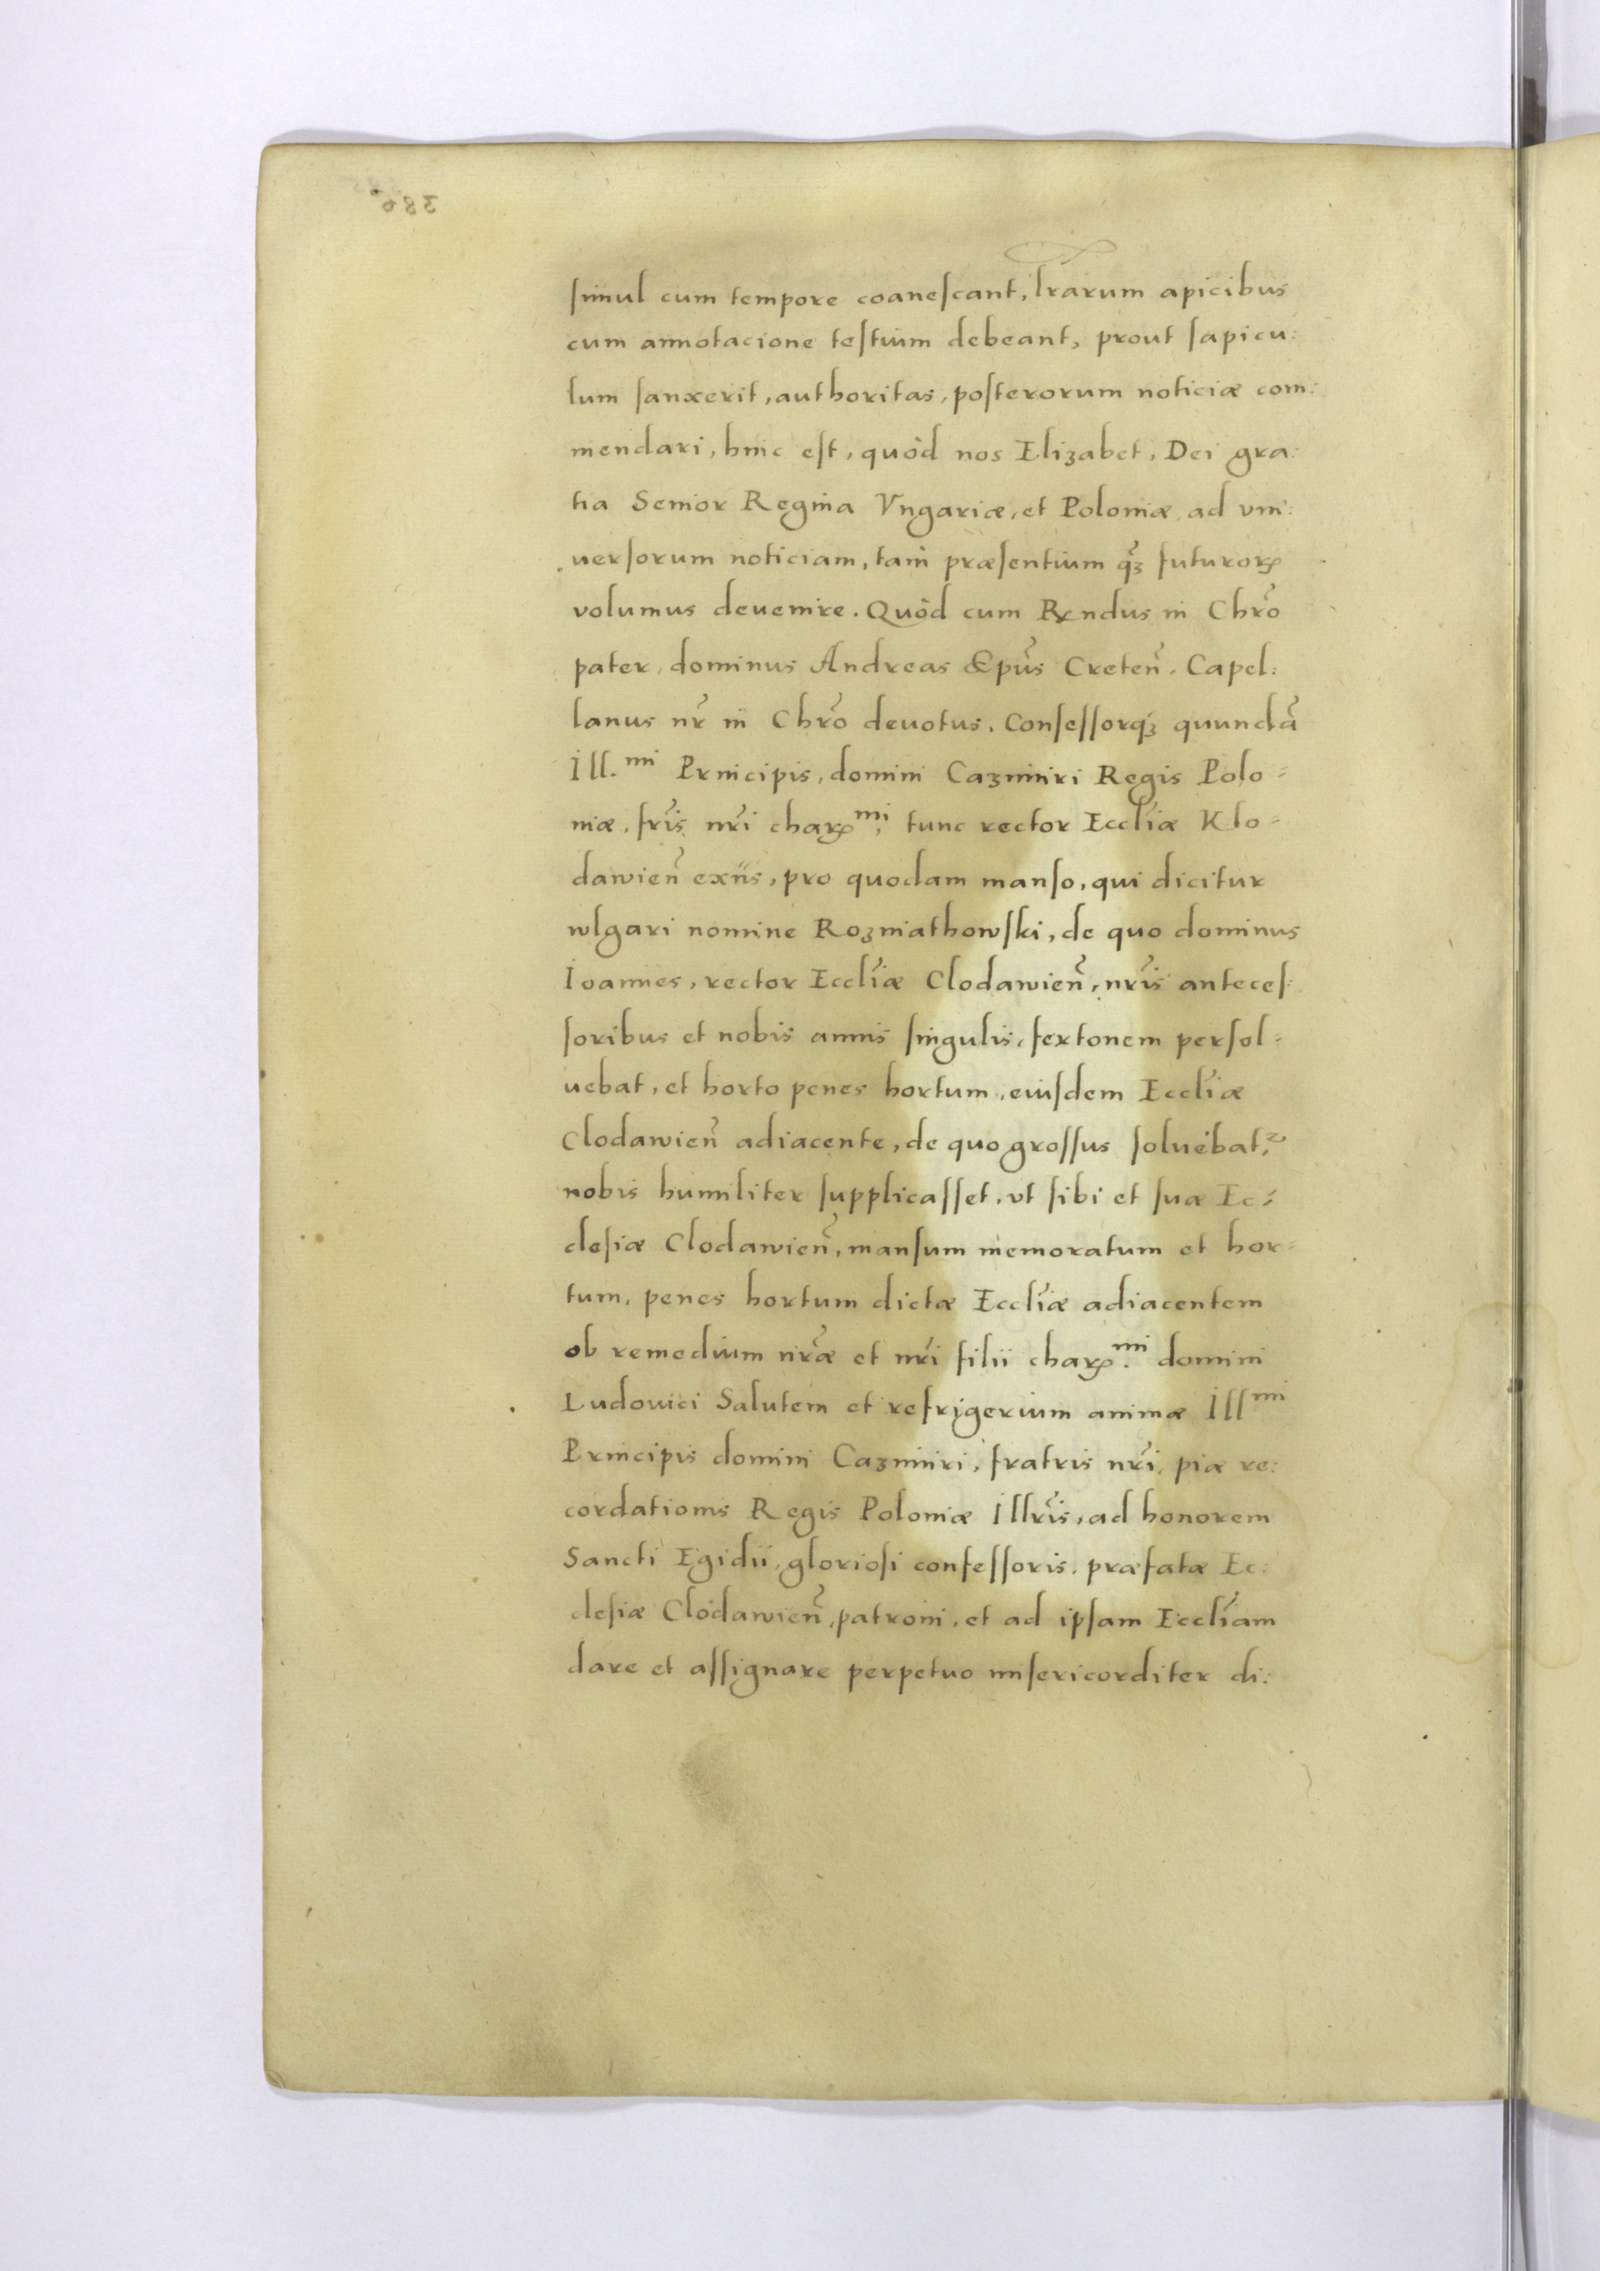 simul cum tempore coanescant, lrarum apicibus
cum annotacione testium debeant, prout sapicu:
lum sanxerit, authoritas, posterorum noticiæ com:
mendari, hinc est, quòd nos Elizabet, Dei gra:
tia Senior Regina Vngariæ, et Poloniæ, ad vni:
uersorum noticiam, tam præsentium q̃ꝫ futuroꝝ
volumus deuenire. Quòd cum Rendus in Chr̃o
pater, dominus Andreas Epũs Creteñ. Capel:
lanus nr̃ in Chr̃o deuotus, Confessorqꝫ quundã
Ill.mi Principis, domini Cazimiri Regis Polo=
niæ, fr̃is nr̃i chaꝝmi, tunc rector Eccl̃iæ Klo=
dawień exñs, pro quodam manso, qui dicitur
wlgari nomine Rozniathowski, de quo dominus
Ioannes, rector Eccl̃iæ Clodawień, nr̃is anteces:
soribus et nobis annis singulis, fertonem persol=
uebat, et horto penes hortum, eiusdem Eccl̃iæ
Clodawień adiacente, de quo grossus soluebat,
nobis humiliter supplicasset, vt sibi et suæ Ec=
clesiæ Clodawień, mansum memoratum et hor=
tum, penes hortum dictæ Eccl̃iæ adiacentem
ob remedium nr̃æ et nr̃i filii chaꝝ.mi domini
Ludouici Salutem et refrigerium animæ Illmi
Principis domini Cazimiri, fratris nr̃i, piæ re:
cordationis Regis Poloniæ Illr̃is, ad honorem
Sancti Egidii, gloriosi confessoris, præfatæ Ec:
clesiæ Clodawień, patroni, et ad ipsam Eccl̃iam
dare et assignare perpetuo misericorditer di: